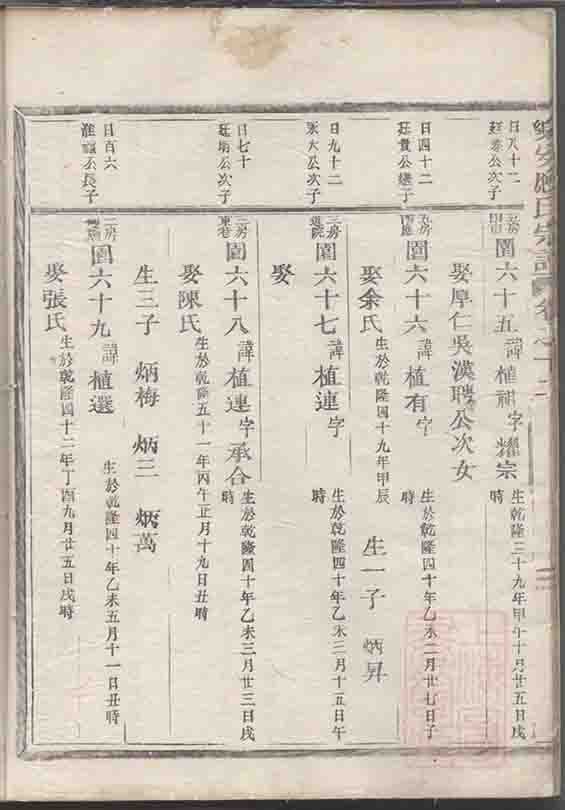 宗譜
日八十二
公次子
圍六十五 諱植 字耀宗 生乾隆三十九年甲午十月廿五日戌時
娶厚仁吳漢聘公次女
日四十二
廷貴公繼子
圍六十六 諱植有 字 生於乾隆四十年乙未二月廿七日子時
娶余氏 生於乾隆四十九年甲辰 生一子 炳昇
日九十二
公次子
三房
圍六十七 諱植連 字 生於乾隆四十年乙未三月十五日午時
娶
日七十
公次子
三房
圍六十八 諱植連 字承合 生於乾隆四十年乙未三月廿三日戌時
娶陳氏 生於乾隆五十一年丙午正月十九日丑時
生三子 炳梅 炳三 炳萬
日百六
公長子
二房
圍六十九 諱植選 生於乾隆四十年乙未五月十一日丑時
娶張氏 生於乾隆四十二年丁酉九月廿五日戌時